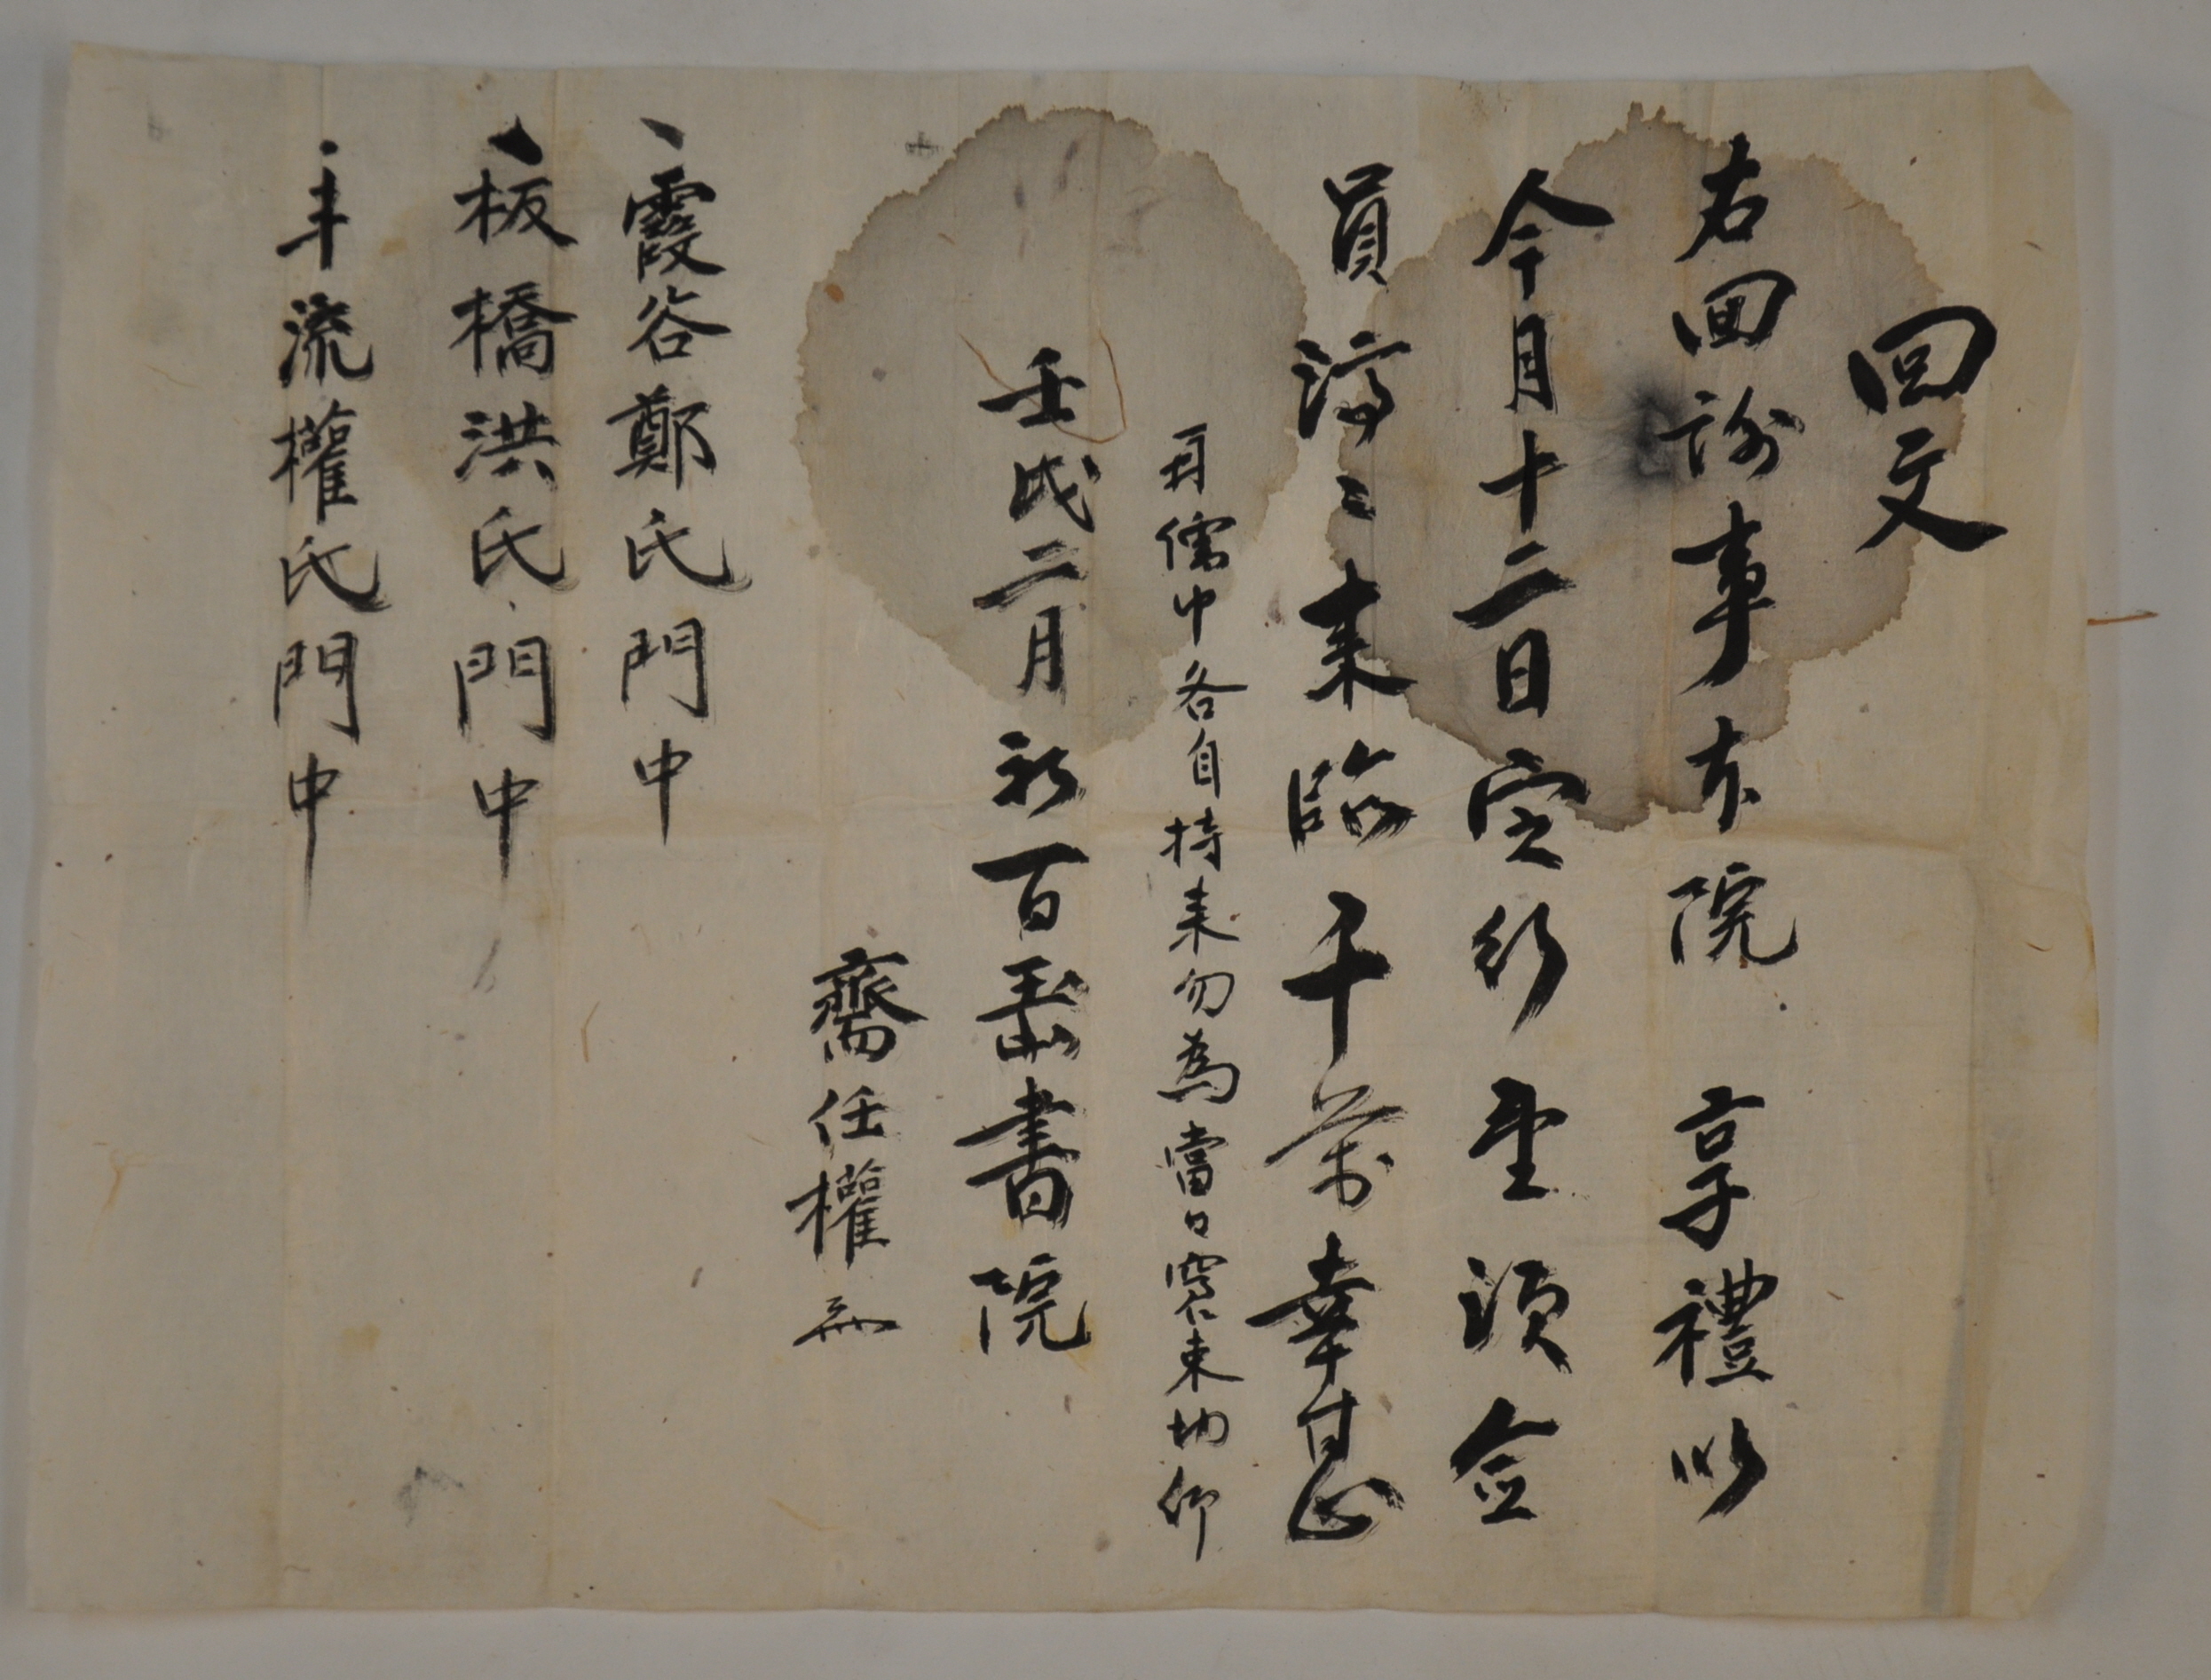 回文
右回諭事本院 享禮以
今月十二日定行望須僉
員濟〻來臨千萬幸甚
再儒巾各自持來勿為當日窘束切仰
壬戌二月初一日玉山書院
齋任權
霞谷鄭氏門中
板橋洪氏門中
流權氏門中